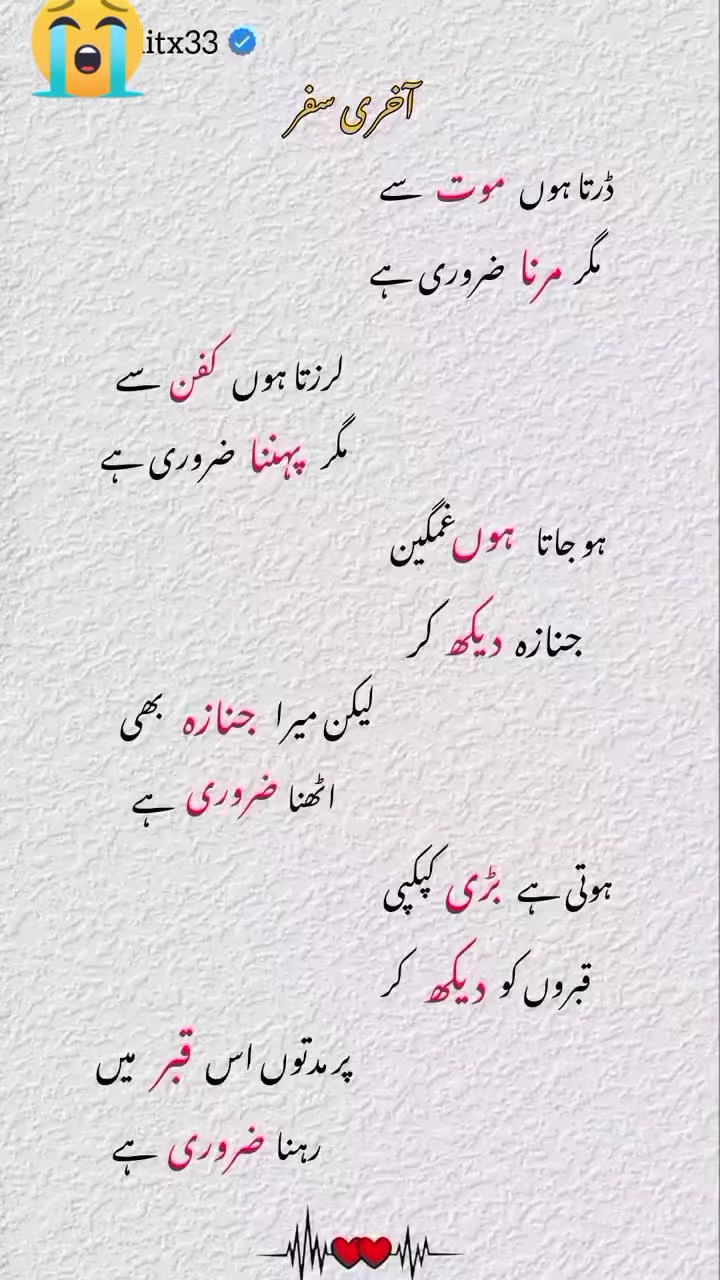 itx33
آخری سفر
ڈرتا ہوں موت سے
مگر مرنا ضروری ہے
لرزتا ہوں کفن سے
مگر پہننا ضروری ہے
ہو جاتا ہوں غمگین
جنازہ دیکھ کر
لیکن میرا جنازہ بھی
اٹھنا ضروری ہے
ہوتی ہے بڑی کپکپی
قبروں کو دیکھ کر
پر مدتوں اس قبر میں
رہنا ضروری ہے